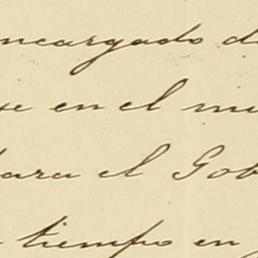 encargado de
se en el mu
para el Gob
tiempo en